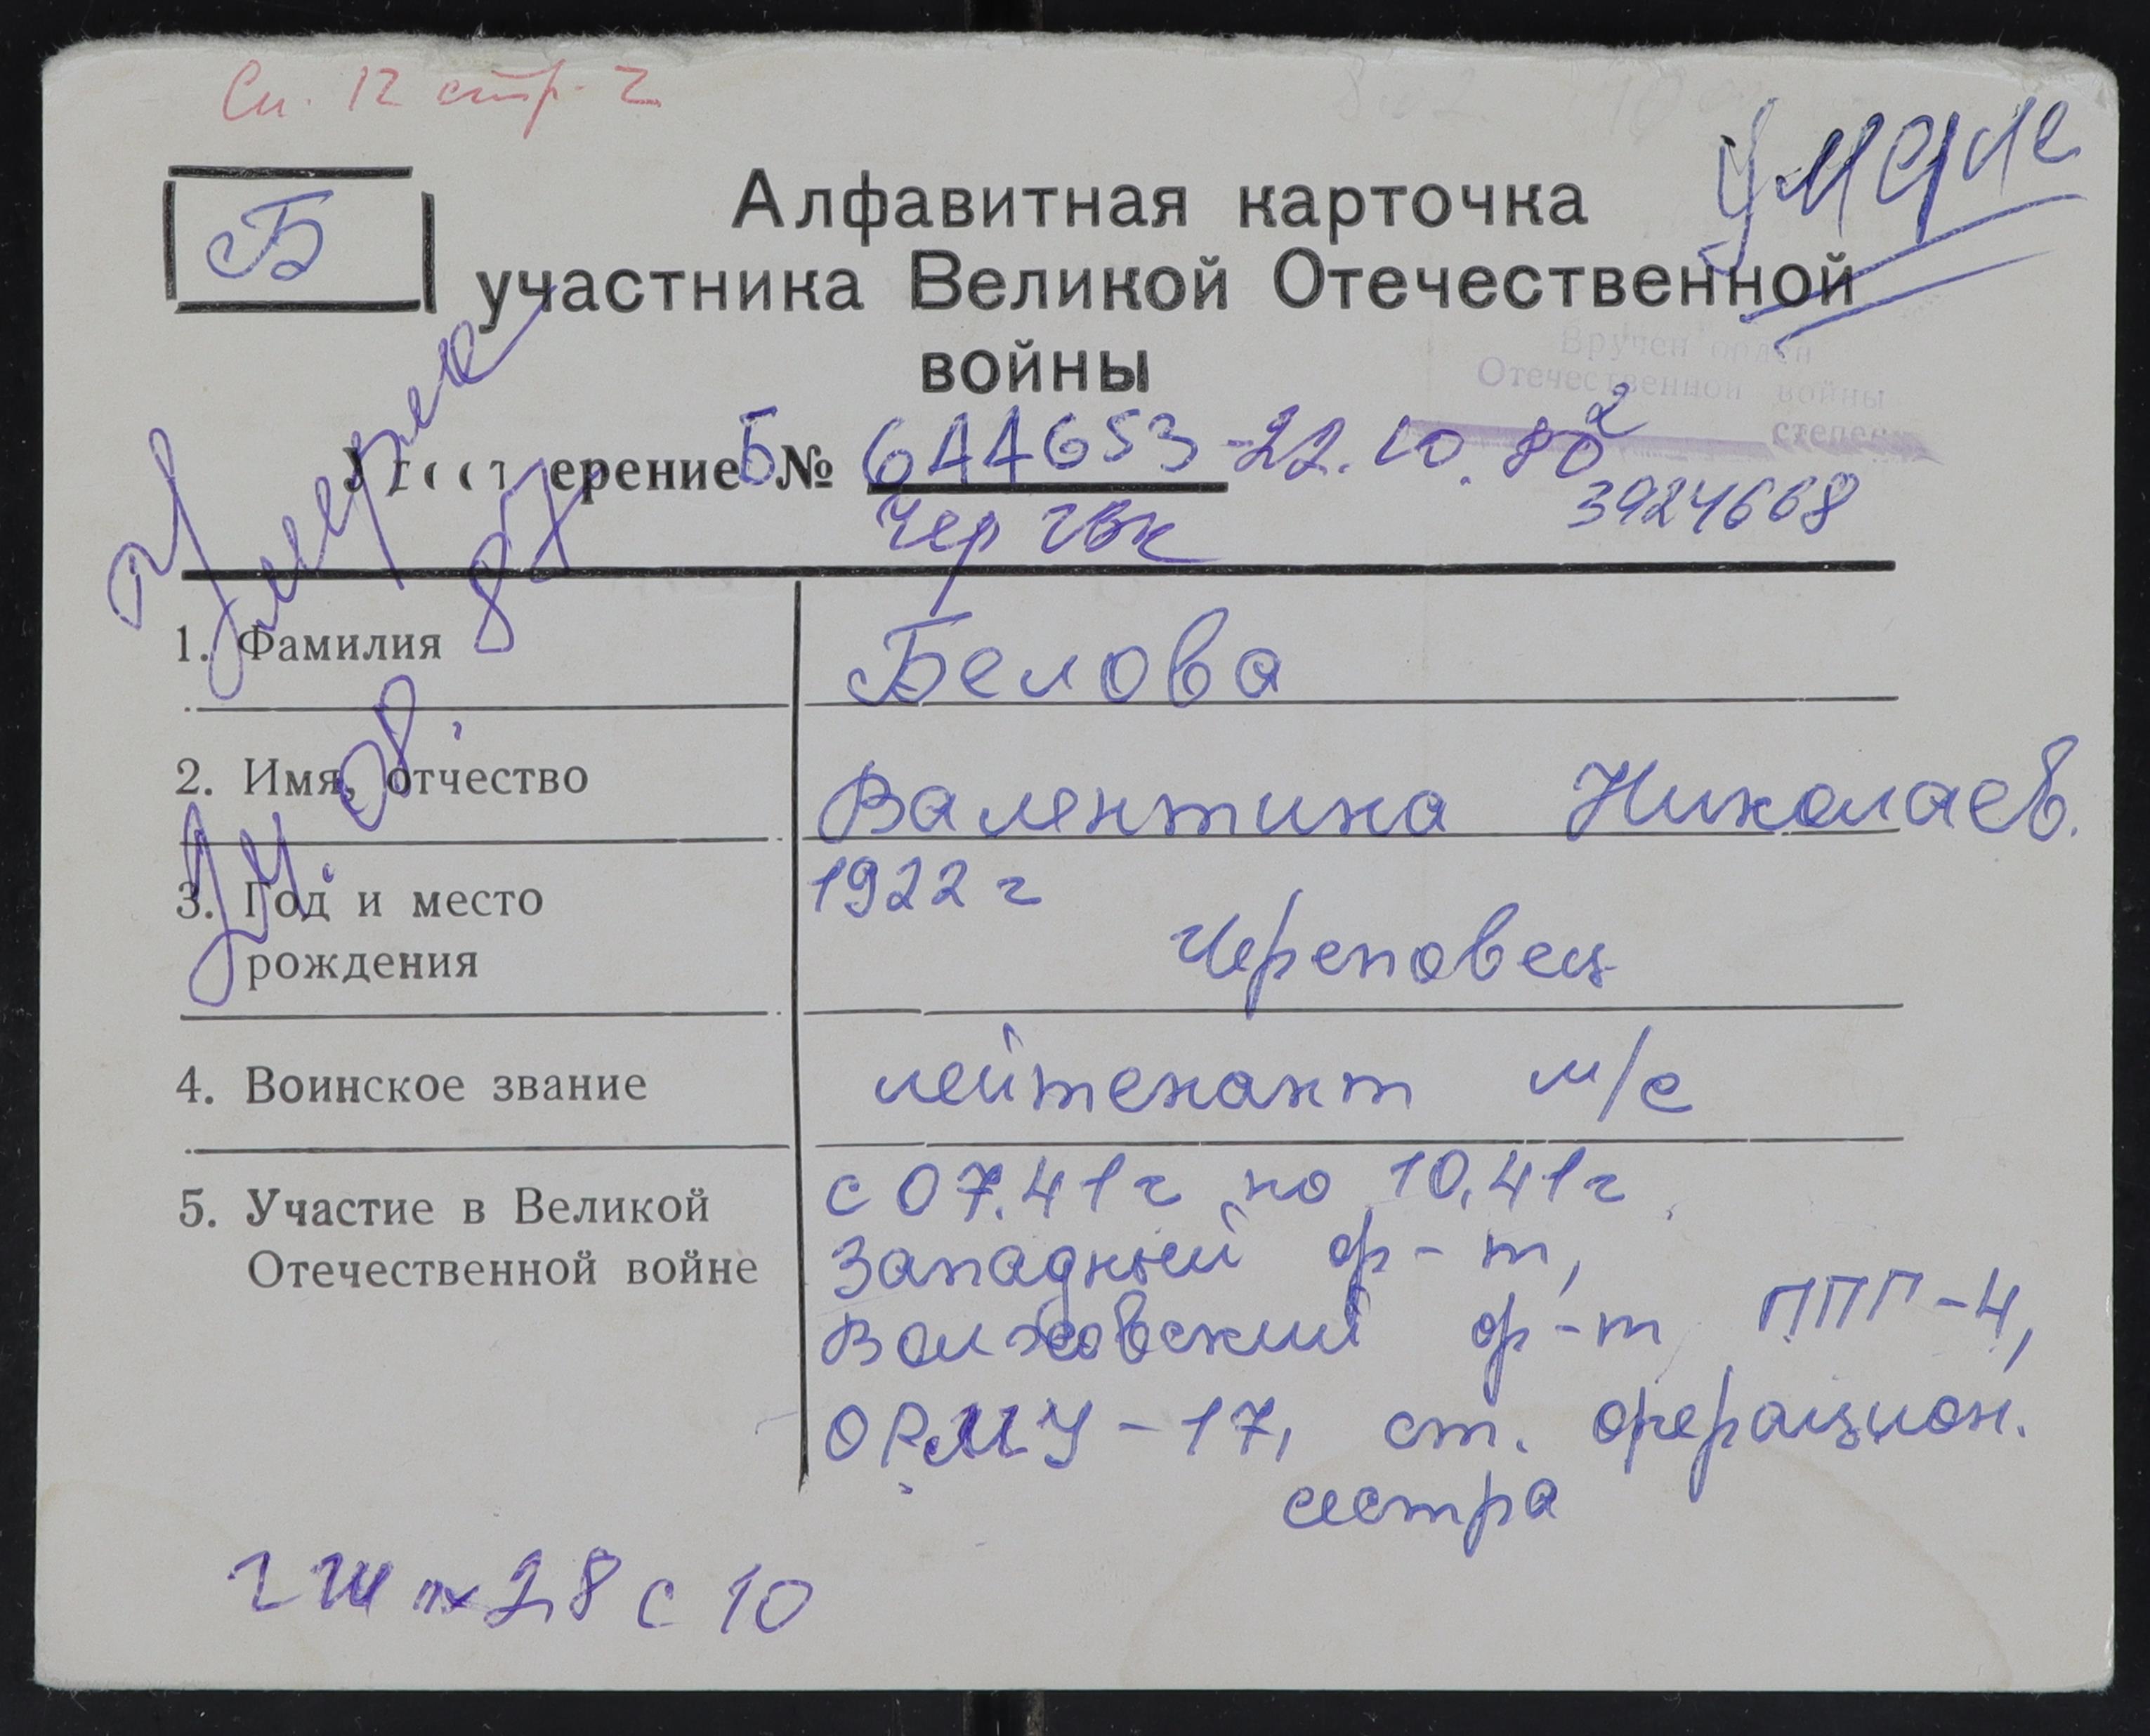 Сп. 12 стр. 2
Умерла
Б
Алфавитная карточка
участника Великой Отечественной
войны
Вручен орден
Отечественной войны
2 степени
Удостоверение Б № 644653 - 22.10.80
Чер ГВК
3924668
Умерла
87
24.08.
1. Фамилия
Белова
2. Имя, отчество
Валентина Николаев.
3. Год и место
рождения
1922 г
Череповец
4. Воинское звание
лейтенант м/с
5. Участие в Великой
Отечественной войне
с 07.41 г по 10.41 г
Западный ф-т,
Волховский ф-т, ППГ-4,
ОРМУ-17, ст. операцион.
сестра
28 с 10